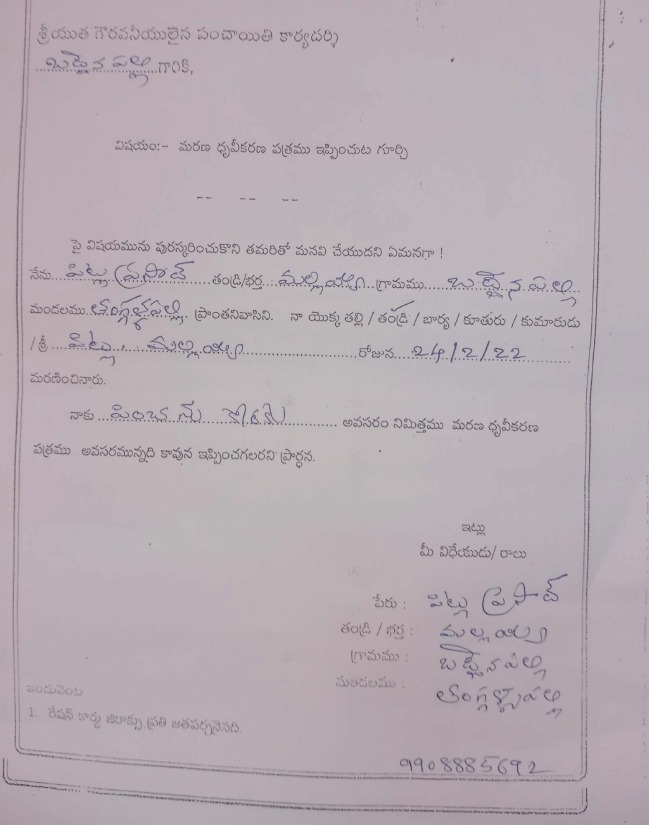 శ్రీయుత గౌరవనీయులైన పంచాయితి కార్యదర్శి
బద్దెనపల్లి గారికి,
విషయం:- మరణ ధృవీకరణ పత్రము ఇప్పించుట గూర్చి
-- -- --
పై విషయమును పురస్కరించుకొని తమరితో మనవి చేయుదని ఏమనగా !
నేను పిట్ల ప్రసాద్ తండ్రి/భర్త మల్లయ్య గ్రామము బద్దెనపల్లి
మండలము తంగళ్ళపల్లి ప్రాంతనివాసిని. నా యొక్క తల్లి / తండ్రి / బార్య / కూతురు / కుమారుడు
/ శ్రీ పిట్ల మల్లయ్య రోజున 24/2/22
మరణించినారు.
నాకు పించను కోరకు అవసరం నిమిత్తము మరణ ధృవీకరణ
పత్రము అవసరమున్నది కావున ఇప్పించగలరని ప్రార్థన.
ఇట్లు
మీ విధేయుడు/ రాలు
పేరు : పిట్ల ప్రసాద్
తండ్రి / భర్త : మల్లయ్య
గ్రామము : బద్దెనపల్లి
మండలము : తంగళ్ళపల్లి
ఇందువెంట
1. రేషన్ కార్డు జిరాక్సు ప్రతి జతపర్చనైనది.
9908885692